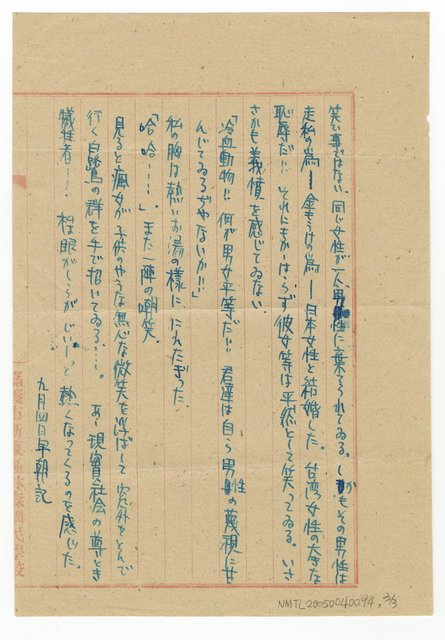 笑い事ではない。同じ女性が一人の男性に棄てられてゐる。しかもその男性は
走私の為ー金もうけの為ー日本女性と結婚した。台湾女性の大きな
恥辱だ!!それにもかゝはらず彼女等は平然として笑ってゐる。いさ
さかも義憤を感じてゐない
「冷血動物!!何が男女平等だ!!君達は自ら男性の蔑視に甘
んじてゐるぢやないか!!」
私の胸は熱いお湯の様ににえたぎつた
「哈哈……」また一陣の嘲笑。
見ると瘋女が子供のやうな無心な微笑を浮ばして窓外をとんで
行く白鷺の群を手で招いてゐる……。あゝ現實社会の尊とき
犠牲者…!私は眼がしらがじいーっと熱くなってくるのを感じた。
九月四日早朝記
NMTL20050040094, 3/3